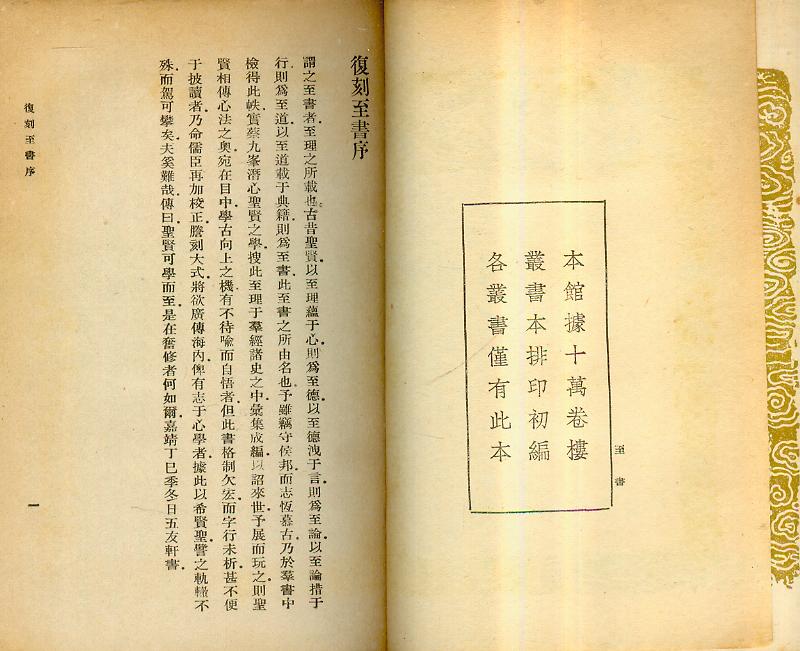 本館據十萬卷樓
叢書本排印初編
各叢書僅有此本
至書
復刻至書序
謂之至書者.至理之所載也.古昔聖賢.以至理蘊于心.則爲至德.以至德洩于言.則爲至論.以至論措于
行.則爲至道.以至道載于典籍.則爲至書.此至書之所由名也.予雖竊守侯邦.而志恆慕古.乃於羣書中
檢得此帙.實蔡九峯潛心聖賢之學.搜此至理于羣經諸史之中.彙集成編.以詔來世.予展而玩之.則聖
賢相傳心法之奧.宛在目中.學古向上之機.有不待喻而自悟者.但此書格制欠宏.而字行未析.甚不便
于披讀者.乃命儒臣再加校正.謄刻大式.將欲廣傳海內.俾有志于心學者.據此以希賢聖.譬之軌轍不
殊.而駕可攀矣.夫奚難哉.傳曰.聖賢可學而至.是在奮修者何如爾.嘉靖丁巳季冬日五友軒書.
復刻至書序
一